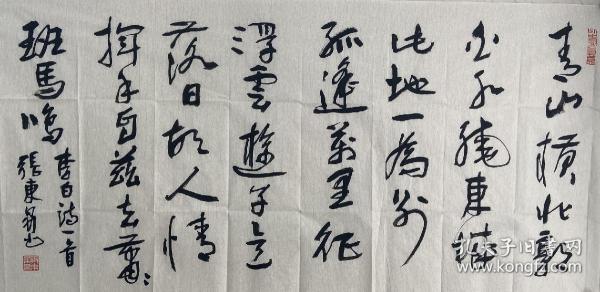 青山橫北郭
白水繞東城
此地一為別
孤蓬萬里征
浮雲遊子意
落日故人情
揮手自茲去蕭〻
班馬鳴
李白詩一首
張東
孔夫子旧书网
www.kongfz.com